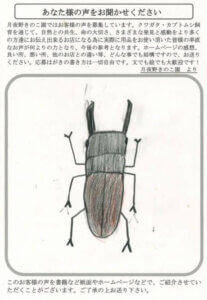 あなた様の声をお聞かせください
月夜野きのこ園ではお客様の声を募集しています。クワガタ・カブトムシ飼
育を通じて、自然との共生、命の大切さ、さまざまな発見と感動をより多く
の方達にお伝え出来るお店になる為に実際に用品をお使い頂いた皆様の率直
なお声が何よりの力となり、今後の参考となります。ホームページの感想、
良い所、悪い所、他のお店との違い等、どんな事でも結構ですので、お送り
ください。応募はがきの書き方は一切自由です。文でも絵でも大歓迎です！
月夜野きのこ園 より
このお客様の声を書籍など紙面やホームページなどで、ご紹介させていた
だくことがございます。ご了承の上お送り下さい。